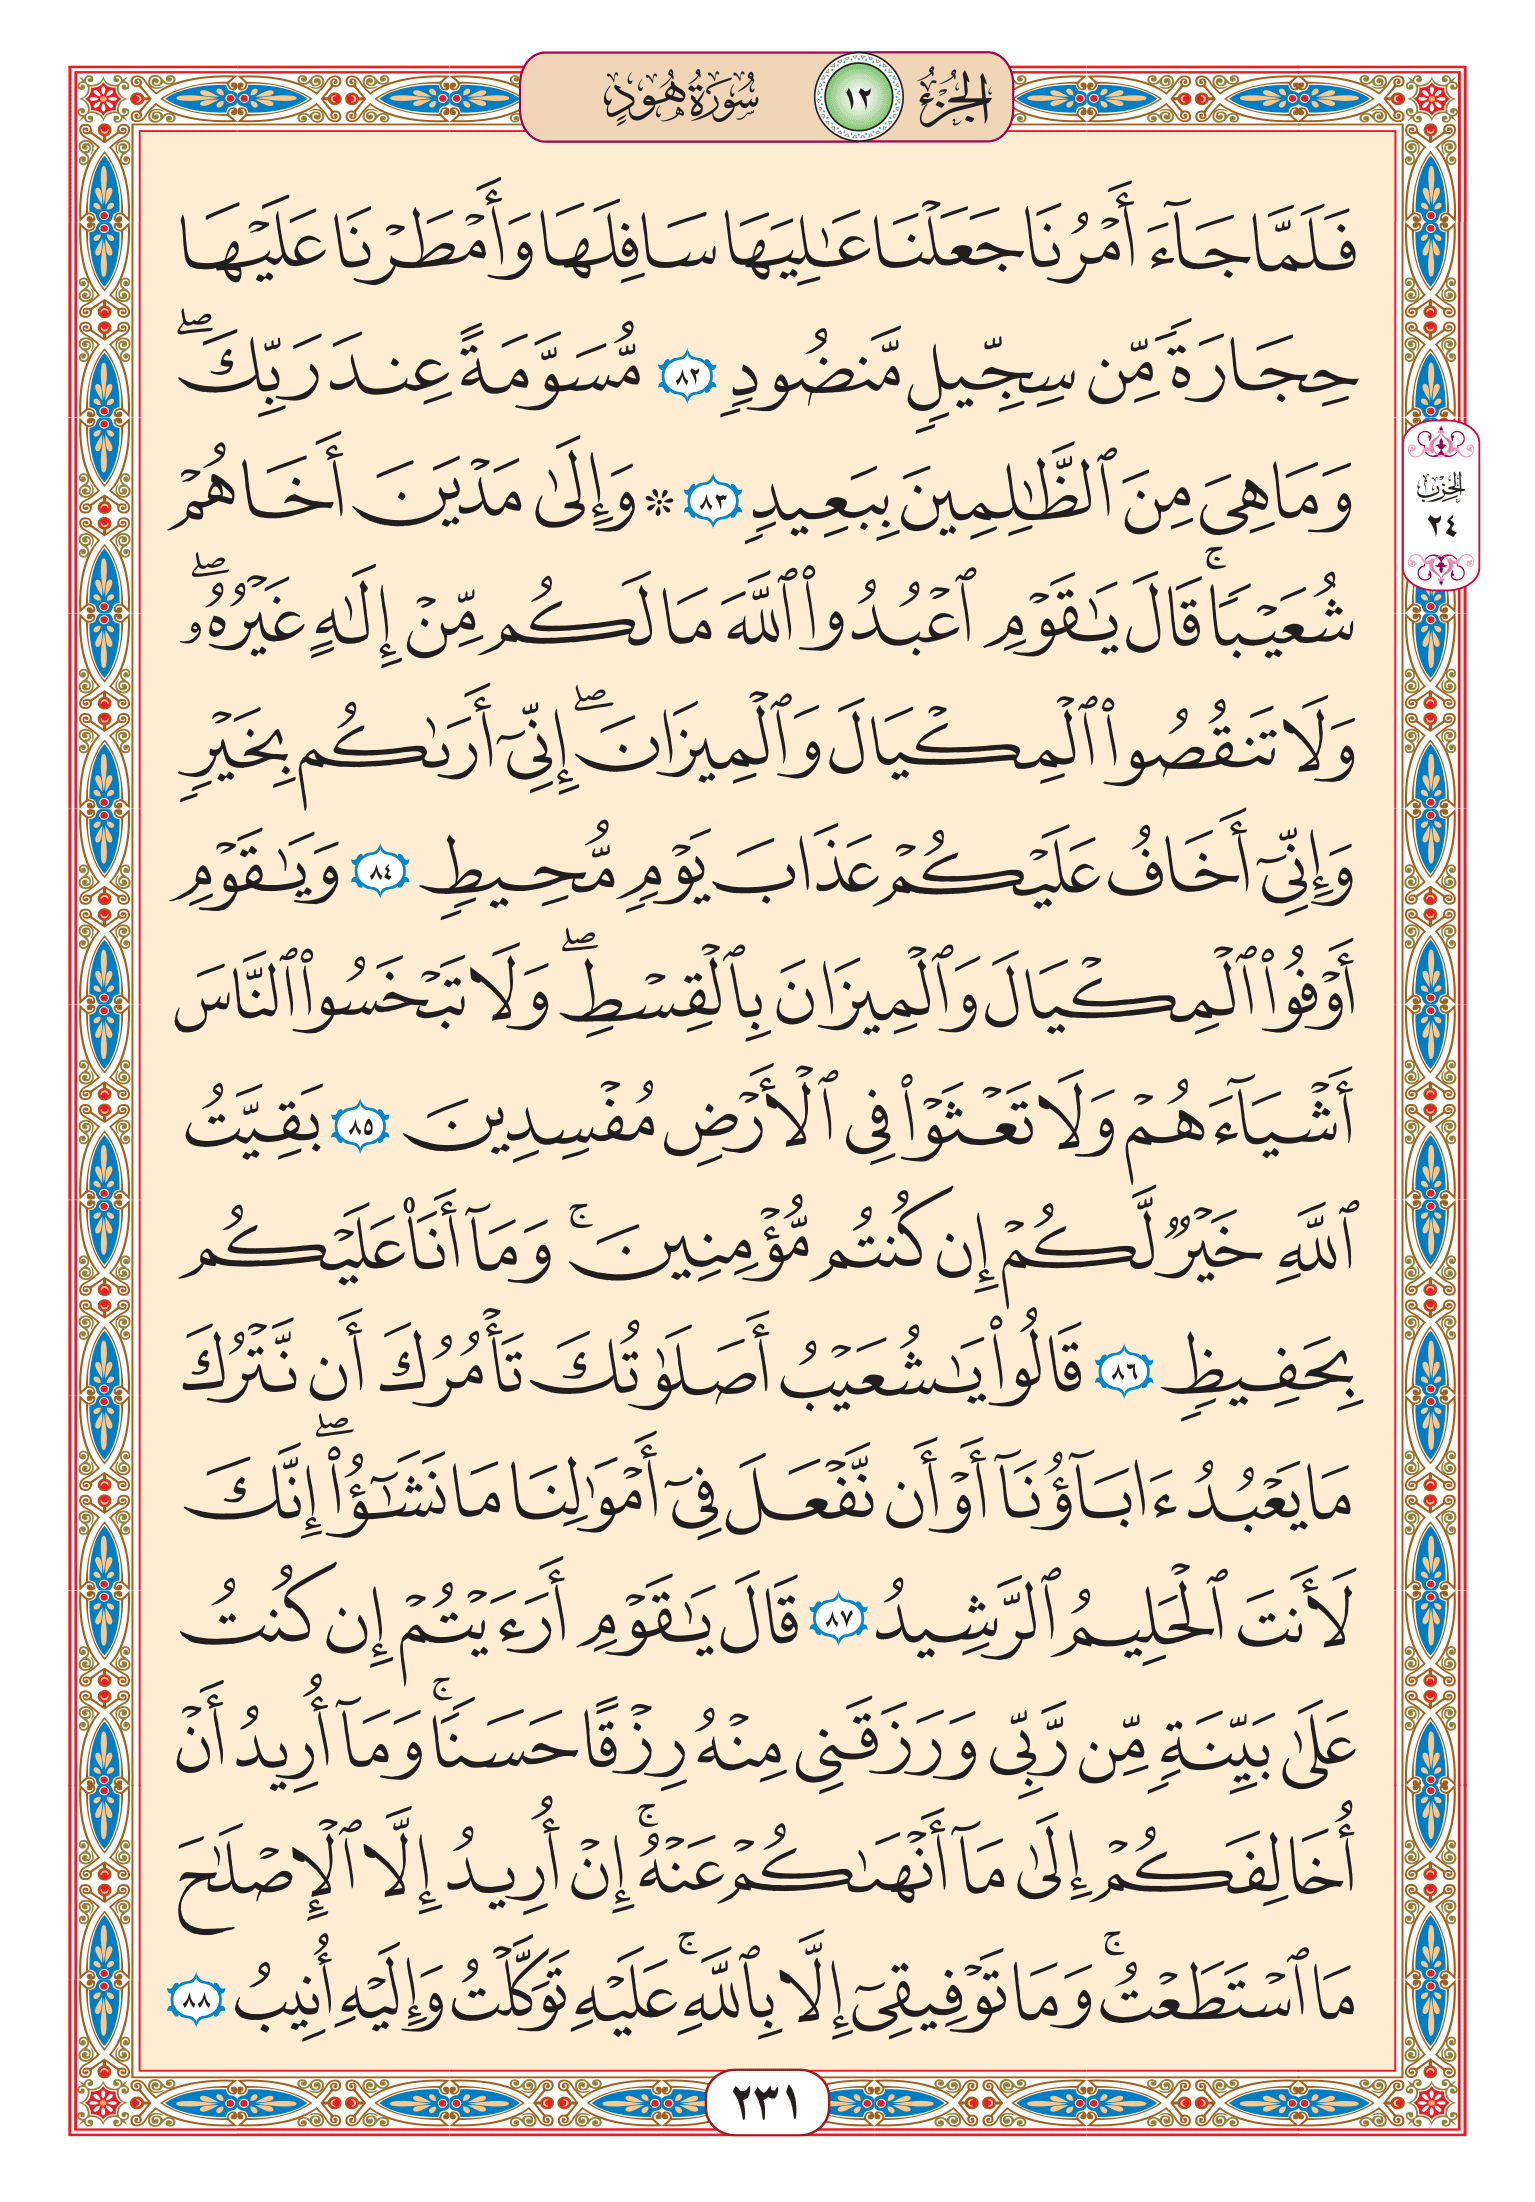 الجزء ١٢ سورة هود
فَلَمَّا جَآءَ أَمْرُنَا جَعَلْنَا عَٰلِيَهَا سَافِلَهَا وَأَمْطَرْنَا عَلَيْهَا
حِجَارَةً مِّن سِجِّيلٍ مَّنضُودٍ ٨٢ مُّسَوَّمَةً عِندَ رَبِّكَۖ
وَمَا هِيَ مِنَ ٱلظَّٰلِمِينَ بِبَعِيدٍ ٨٣ ۞ وَإِلَىٰ مَدْيَنَ أَخَاهُمْ
شُعَيْبًاۚ قَالَ يَٰقَوْمِ ٱعْبُدُوا۟ ٱللَّهَ مَا لَكُم مِّنْ إِلَٰهٍ غَيْرُهُۥۖ
وَلَا تَنقُصُوا۟ ٱلْمِكْيَالَ وَٱلْمِيزَانَۖ إِنِّىٓ أَرَىٰكُم بِخَيْرٍ
وَإِنِّىٓ أَخَافُ عَلَيْكُمْ عَذَابَ يَوْمٍ مُّحِيطٍ ٨٤ وَيَٰقَوْمِ
أَوْفُوا۟ ٱلْمِكْيَالَ وَٱلْمِيزَانَ بِٱلْقِسْطِۖ وَلَا تَبْخَسُوا۟ ٱلنَّاسَ
أَشْيَآءَهُمْ وَلَا تَعْثَوْا۟ فِى ٱلْأَرْضِ مُفْسِدِينَ ٨٥ بَقِيَّتُ
ٱللَّهِ خَيْرٌ لَّكُمْ إِن كُنتُم مُّؤْمِنِينَۚ وَمَآ أَنَا۠ عَلَيْكُم
بِحَفِيظٍ ٨٦ قَالُوا۟ يَٰشُعَيْبُ أَصَلَوٰتُكَ تَأْمُرُكَ أَن نَّتْرُكَ
مَا يَعْبُدُ ءَابَآؤُنَآ أَوْ أَن نَّفْعَلَ فِىٓ أَمْوَٰلِنَا مَا نَشَٰٓؤُا۟ۖ إِنَّكَ
لَأَنتَ ٱلْحَلِيمُ ٱلرَّشِيدُ ٨٧ قَالَ يَٰقَوْمِ أَرَءَيْتُمْ إِن كُنتُ
عَلَىٰ بَيِّنَةٍ مِّن رَّبِّى وَرَزَقَنِى مِنْهُ رِزْقًا حَسَنًاۚ وَمَآ أُرِيدُ أَنْ
أُخَالِفَكُمْ إِلَىٰ مَآ أَنْهَىٰكُمْ عَنْهُۚ إِنْ أُرِيدُ إِلَّا ٱلْإِصْلَٰحَ
مَا ٱسْتَطَعْتُۚ وَمَا تَوْفِيقِىٓ إِلَّا بِٱللَّهِۚ عَلَيْهِ تَوَكَّلْتُ وَإِلَيْهِ أُنِيبُ ٨٨
الحزب
٢٤
٢٣١